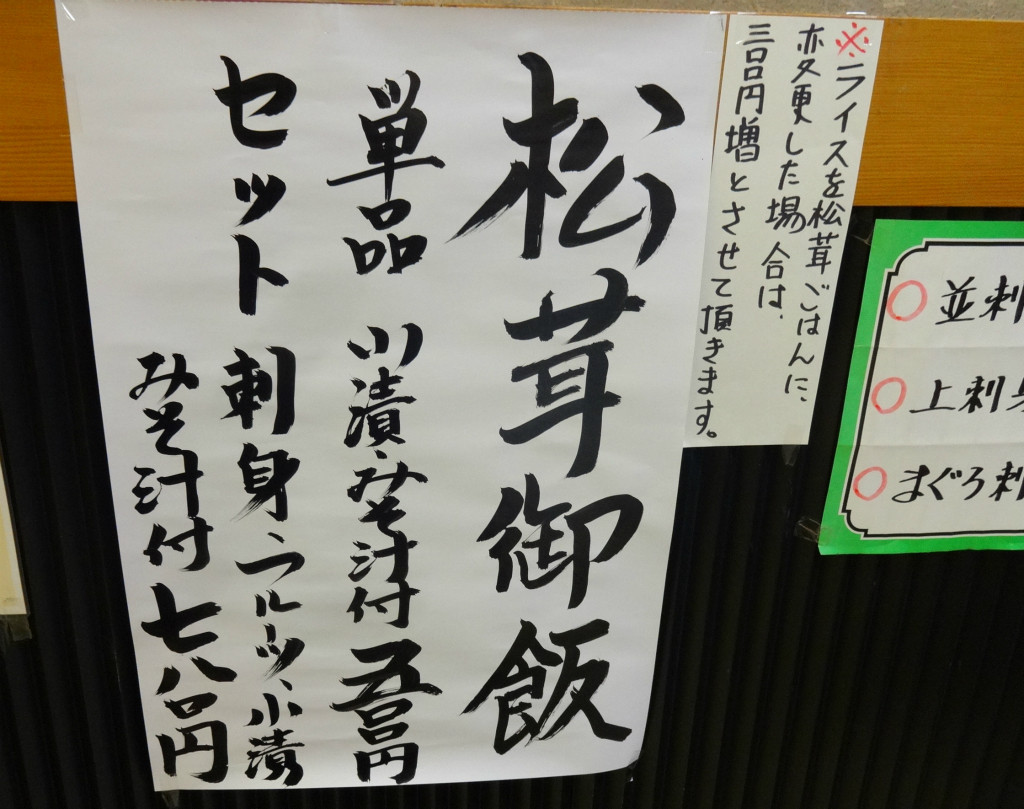 ※ライスを松茸ごはんに、
変更した場合は、
三〇〇円増とさせて頂きます。
松茸御飯
単品 小漬・みそ汁付 五〇〇円
セット 刺身・フルーツ・小漬
みそ汁付 七八〇円
○並刺
○上刺身
○まぐろ刺